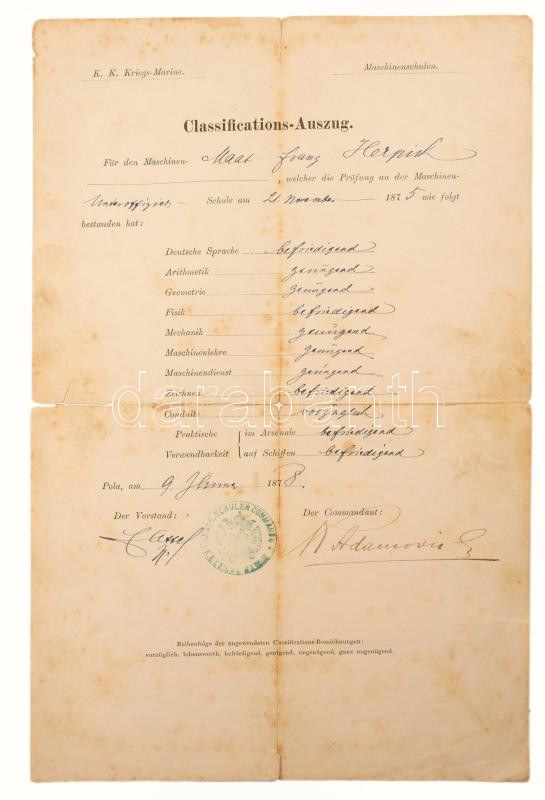 K. K. Kriegs-Marine.
Maschinenschulen.
Classifications-Auszug.
Für den Maschinen- Maat Franz Herpich
welcher die Prüfung an der Maschinen-
Unteroffiziers Schule am 21. November 1875 wie folgt
bestanden hat:
Deutsche Sprache befriedigend
Arithmetik genügend
Geometrie genügend
Fisik befriedigend
Mechanik genügend
Maschinenlehre genügend
Maschinendienst genügend
Zeichnen befriedigend
Conduite vorzüglich
Praktische Verwendbarkeit
im Arsenale befriedigend
auf Schiffen befriedigend
Pola, am 9. 1878.
Der Vorstand:
Der Commandant:
Adamovic
Reihenfolge der angewendeten Classifications-Bezeichnungen:
vorzüglich, lobenswerth, befriedigend, genügend, ungenügend, ganz ungenügend.
darabanth